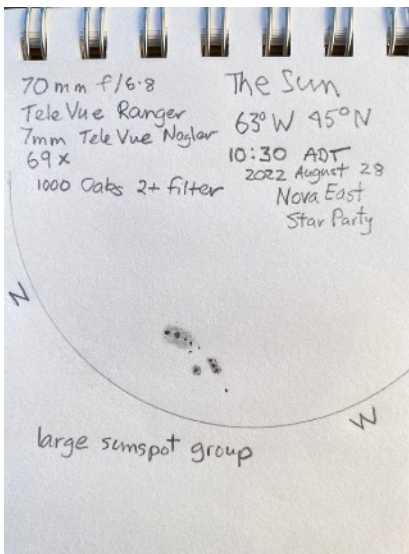 70 mm f/6.8
TeleVue Ranger
7mm TeleVue Nagler
69x
1000 Oaks 2+ filter
The Sun
63° W 45° N
10:30 ADT
2022 August 28
Nova East
Star Party
N
W
large sunspot group